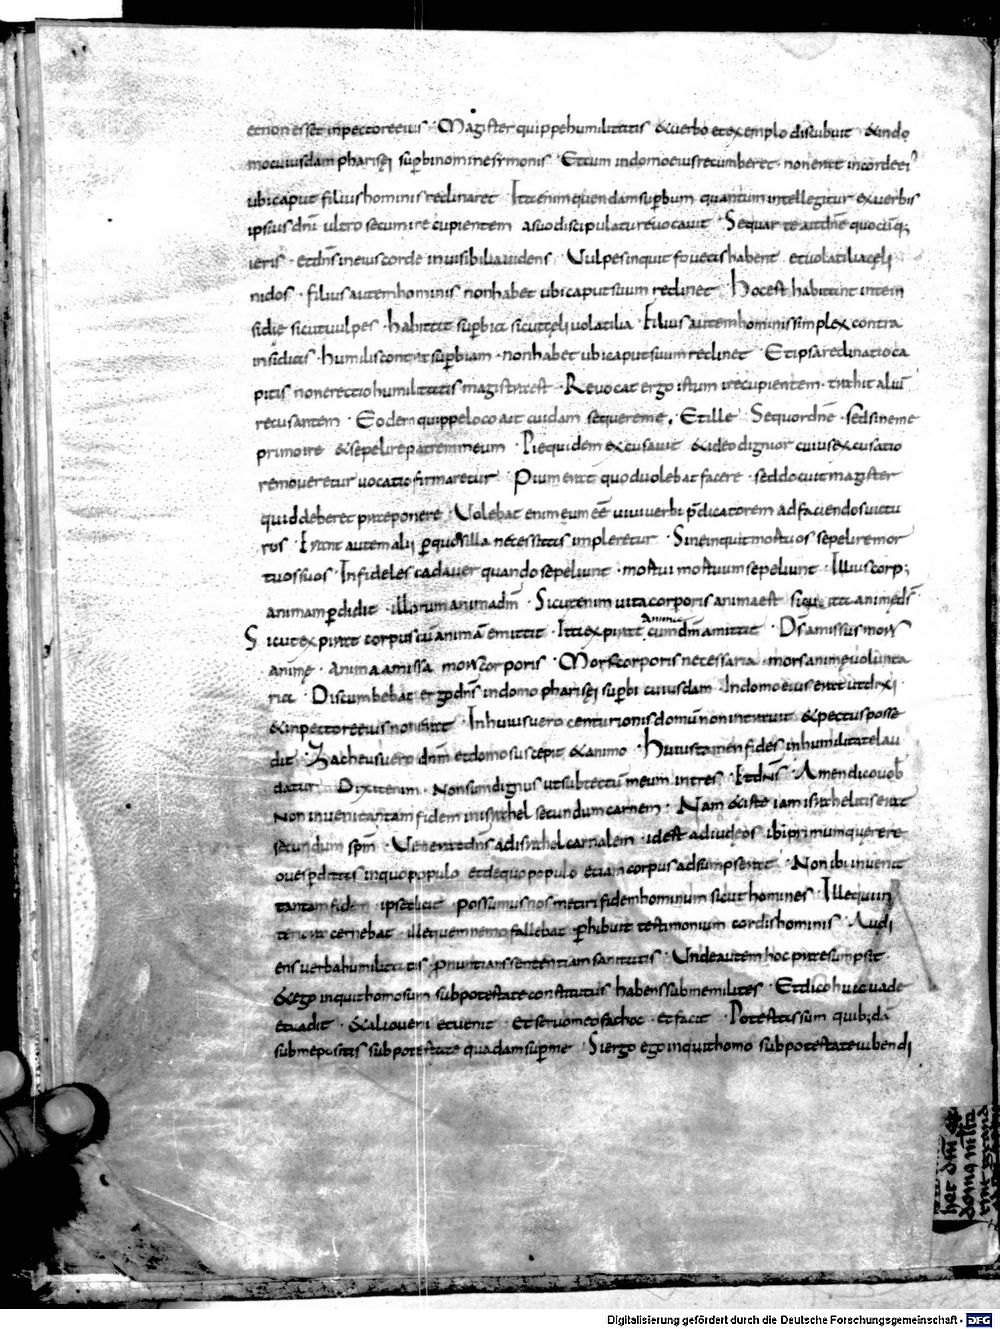 et non esset in pectore eius · Magister quippe humilitatis & verbo et exemplo discubuit · & indo
mo cuiusdam pharisęi supbi nomine simonis · Et cum in domo eius recumberet · non erat in corde ei'
ubi caput filius hominis reclinaret · Ita enim quendam supbum quantum intellegitur ex verbis
ipsius dni ultro secum ire cupientem a suo discipulatu revocavit · Sequar te ait dne quocuq;
ieris · et dns in eius corde invisibilia videns · Vulpes inquit foveas habent et volatilia cęli
nidos · filius autem hominis non habet ubi caput suum reclinet · Hoc est habitant in te in
sidię sicut vulpes · habitat supbia sicut cęli volatilia · Filius autem hominis simplex contra
insidias · humilis contra supbiam · non habet ubi caput suum reclinet · Et ipsa reclinatio ca
pitis non erectio humilitatis magistra est · Revocat ergo istum ire cupientem · trahit aliu
recusantem · Eodem quippe loco ait cuidam sequere me · Et ille · Sequor dne · sed sine me
primo ire & sepelire patrem meum · Pie quidem excusavit & ideo dignior cuius excusatio
removeretur vocatio firmaretur · Pium erat quod volebat facere · sed docuit magister
quid deberet preponere · Volebat enim eum eē vivi verbi pdicatorem ad faciendos victu
ros · Erant autem alii p quos illa necessitas impleretur · Sine inquit mortuos sepelire mor
tuos suos · Infideles cadaver quando sepeliunt · mortui mortuum sepeliunt · Illius corp;
animam pdidit · illorum anima dm · Sicut enim vita corporis anima est sic vita animę ds
Sicut expirat corpus cu animā emittit · Ita expirat anima cum dm amittit · Ds amissus mors
animę · anima amissa mors corporis · Mors corporis necessaria · mors animę volunta
ria · Discumbebat ergo dns in domo pharisęi supbi cuiusdam · In domo eius erat ut dixi
& in pectore eius non erat · In huius vero centurionis domu non intravit & pectus posse
dit · Zacheus vero dnm et domo suscepit & animo · Huius tamen fides in humilitate lau
datur · Dixit enim · Non sum dignus ut sub tectu meum intres · Et dns · Amen dico vob
Non inveni tantam fidem in israhel secundum carnem · Nam & iste iam israhelita erat
secundum spm · Venerat dns ad israhel carnalem · id est ad iudęos ibi primum querere
oves pditas in quo populo et de quo populo etiam corpus adsumpserat · Non ibi inveni
tantam fidem ipse dicit · possumus nos metiri fidem hominum sicut homines · Ille qui in
teriora cernebat · ille quem nemo fallebat phibuit testimonium cordis hominis · Audi
ens verba humilitatis · pnuntians sententiam sanitatis · Unde autem hoc presumpsit ·
& ego inquit homo sum sub potestate constitutus habens sub me milites · Et dico huic vade
et vadit · & alio veni et venit · et servo meo fac hoc · et facit · Potestas sum quib;dā
sub me positis sub potestate quadam supra me · Si ergo ego inquit homo sub potestate iubendi
Digitalisierung gefördert durch die Deutsche Forschungsgemeinschaft - DFG